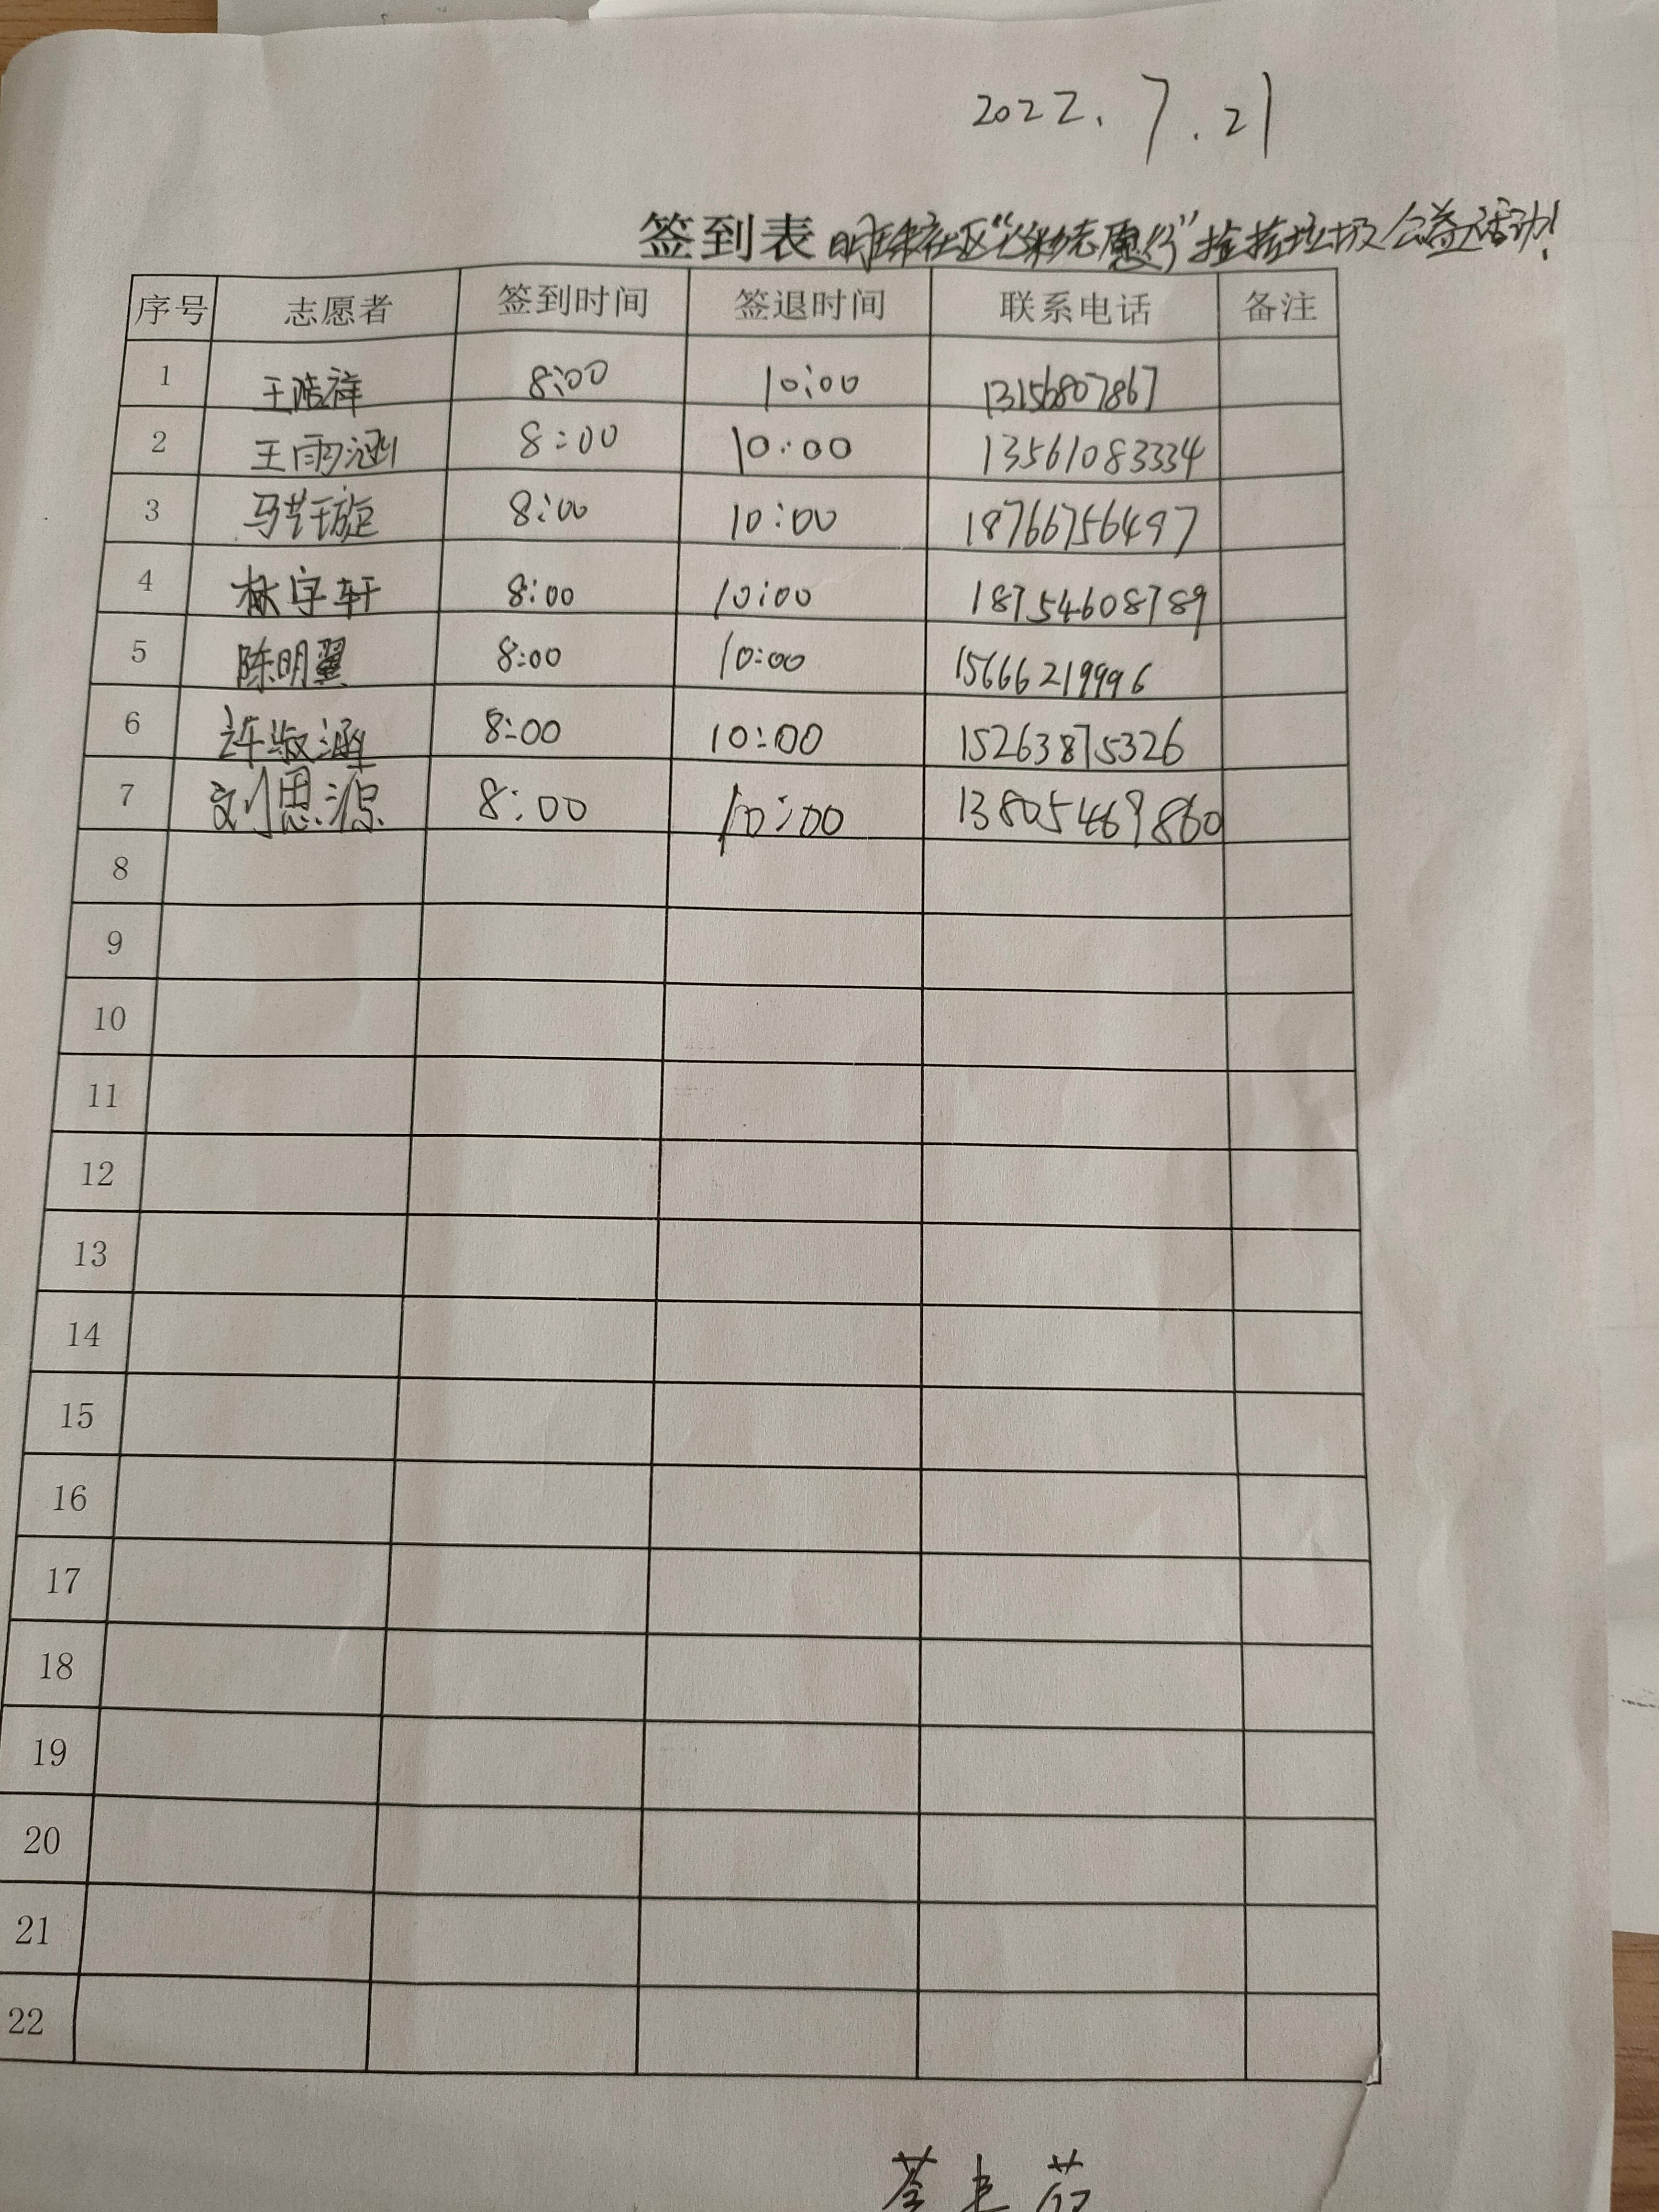 2022.7.21
签到表 明珠社区“七彩志愿行”捡拾垃圾公益活动!
序号 志愿者 签到时间 签退时间 联系电话 备注
1 王皓祥 8:00 10:00 13156807867
2 王雨涵 8:00 10:00 13561083334
3 马芸旋 8:00 10:00 18766756497
4 林宇轩 8:00 10:00 18754608789
5 陈明翼 8:00 10:00 15666219996
6 许淑涵 8:00 10:00 15263875326
7 刘思源 8:00 10:00 13805469860
8
9
10
11
12
13
14
15
16
17
18
19
20
21
22